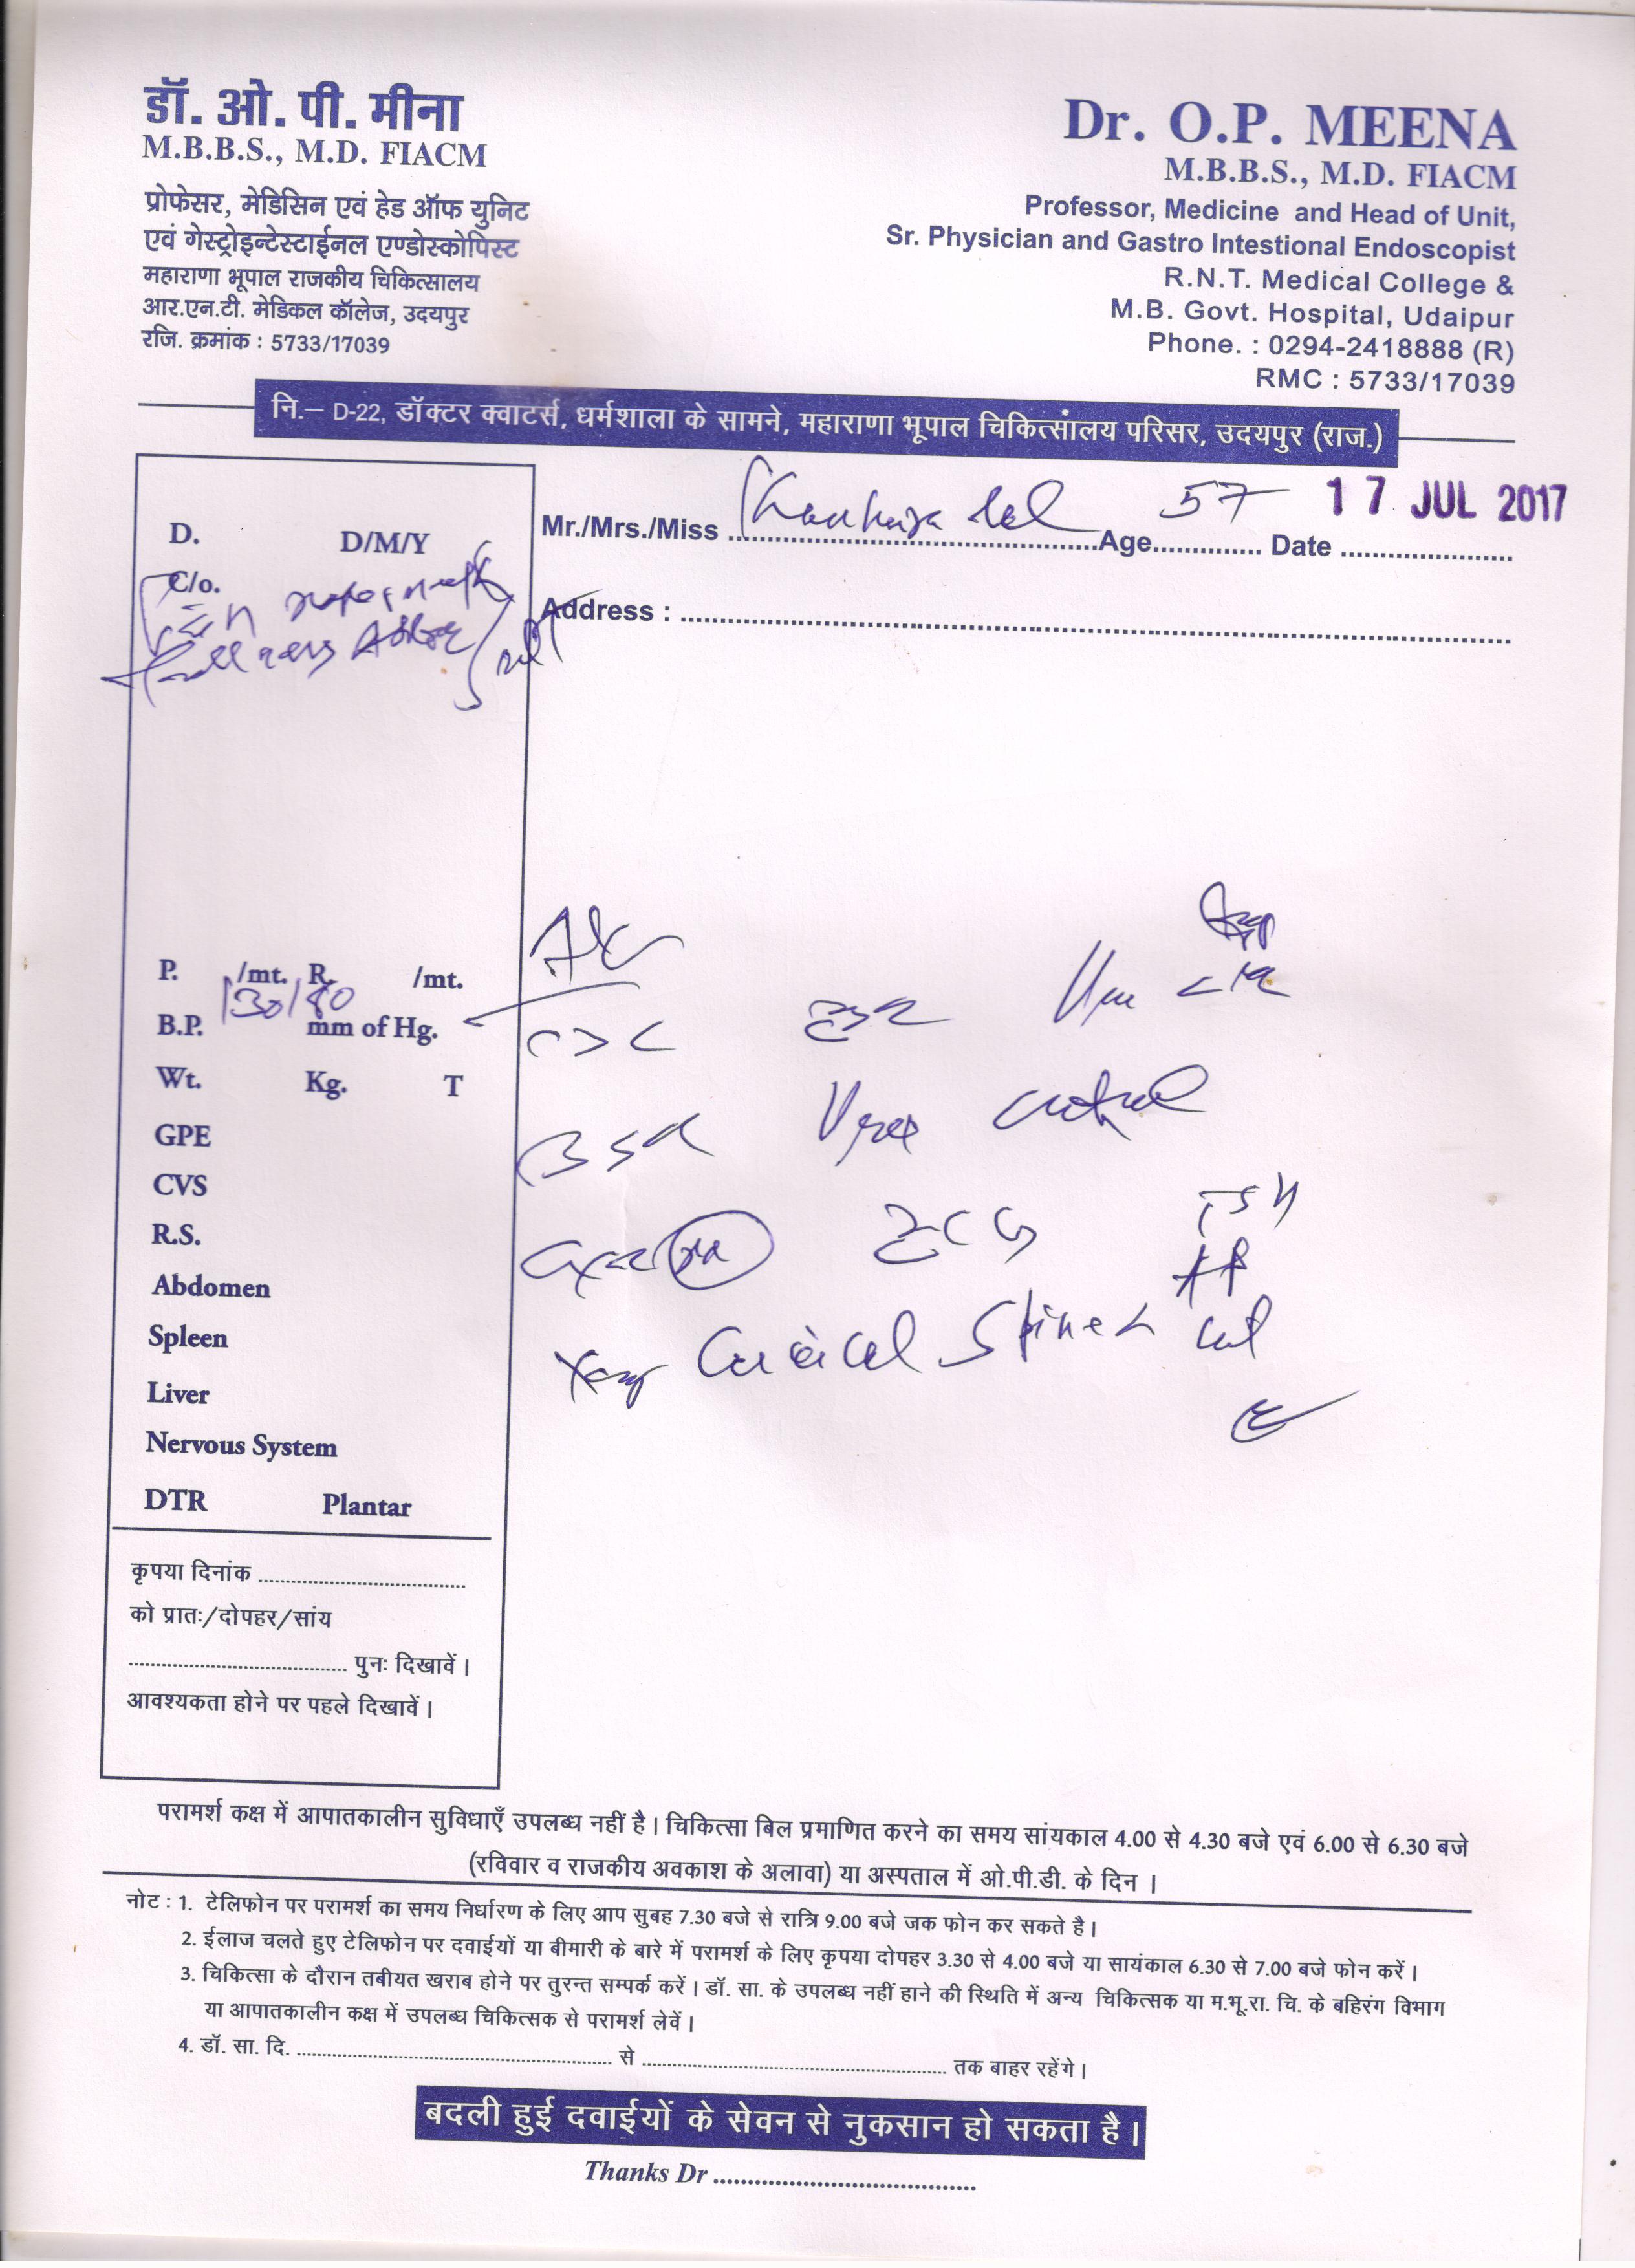 डॉ. ओ. पी. मीना
M.B.B.S., M.D. FIACM
प्रोफेसर, मेडिसिन एवं हेड ऑफ युनिट
एवं गेस्ट्रोइन्टेस्टाईनल एण्डोस्कोपिस्ट
महाराणा भूपाल राजकीय चिकित्सालय
आर.एन.टी. मेडिकल कॉलेज, उदयपुर
रजि. क्रमांक : 5733/17039
Dr. O.P. MEENA
M.B.B.S., M.D. FIACM
Professor, Medicine and Head of Unit,
Sr. Physician and Gastro Intestional Endoscopist
R.N.T. Medical College &
M.B. Govt. Hospital, Udaipur
Phone. : 0294-2418888 (R)
RMC : 5733/17039
नि.– D-22, डॉक्टर क्वाटर्स, धर्मशाला के सामने, महाराणा भूपाल चिकित्सालय परिसर, उदयपुर (राज.)
Mr./Mrs./Miss Age 57 Date 17 JUL 2017
Address :
D. D/M/Y
C/o.
P. /mt. R. /mt.
B.P. 130/80 mm of Hg.
Wt. Kg. T
GPE
CVS
R.S.
Abdomen
Spleen
Liver
Nervous System
DTR Plantar
कृपया दिनांक
को प्रातः/दोपहर/सांय
पुनः दिखावें।
आवश्यकता होने पर पहले दिखावें।
CBC ESR
ECG TSH
Xray Cervical Spine
परामर्श कक्ष में आपातकालीन सुविधाएँ उपलब्ध नहीं है। चिकित्सा बिल प्रमाणित करने का समय सांयकाल 4.00 से 4.30 बजे एवं 6.00 से 6.30 बजे
(रविवार व राजकीय अवकाश के अलावा) या अस्पताल में ओ.पी.डी. के दिन ।
नोट : 1. टेलिफोन पर परामर्श का समय निर्धारण के लिए आप सुबह 7.30 बजे से रात्रि 9.00 बजे जक फोन कर सकते है।
2. ईलाज चलते हुए टेलिफोन पर दवाईयों या बीमारी के बारे में परामर्श के लिए कृपया दोपहर 3.30 से 4.00 बजे या सायंकाल 6.30 से 7.00 बजे फोन करें।
3. चिकित्सा के दौरान तबीयत खराब होने पर तुरन्त सम्पर्क करें। डॉ. सा. के उपलब्ध नहीं हाने की स्थिति में अन्य चिकित्सक या म.भू.रा. चि. के बहिरंग विभाग
या आपातकालीन कक्ष में उपलब्ध चिकित्सक से परामर्श लेवें।
4. डॉ. सा. दि. से तक बाहर रहेंगे।
बदली हुई दवाईयों के सेवन से नुकसान हो सकता है।
Thanks Dr